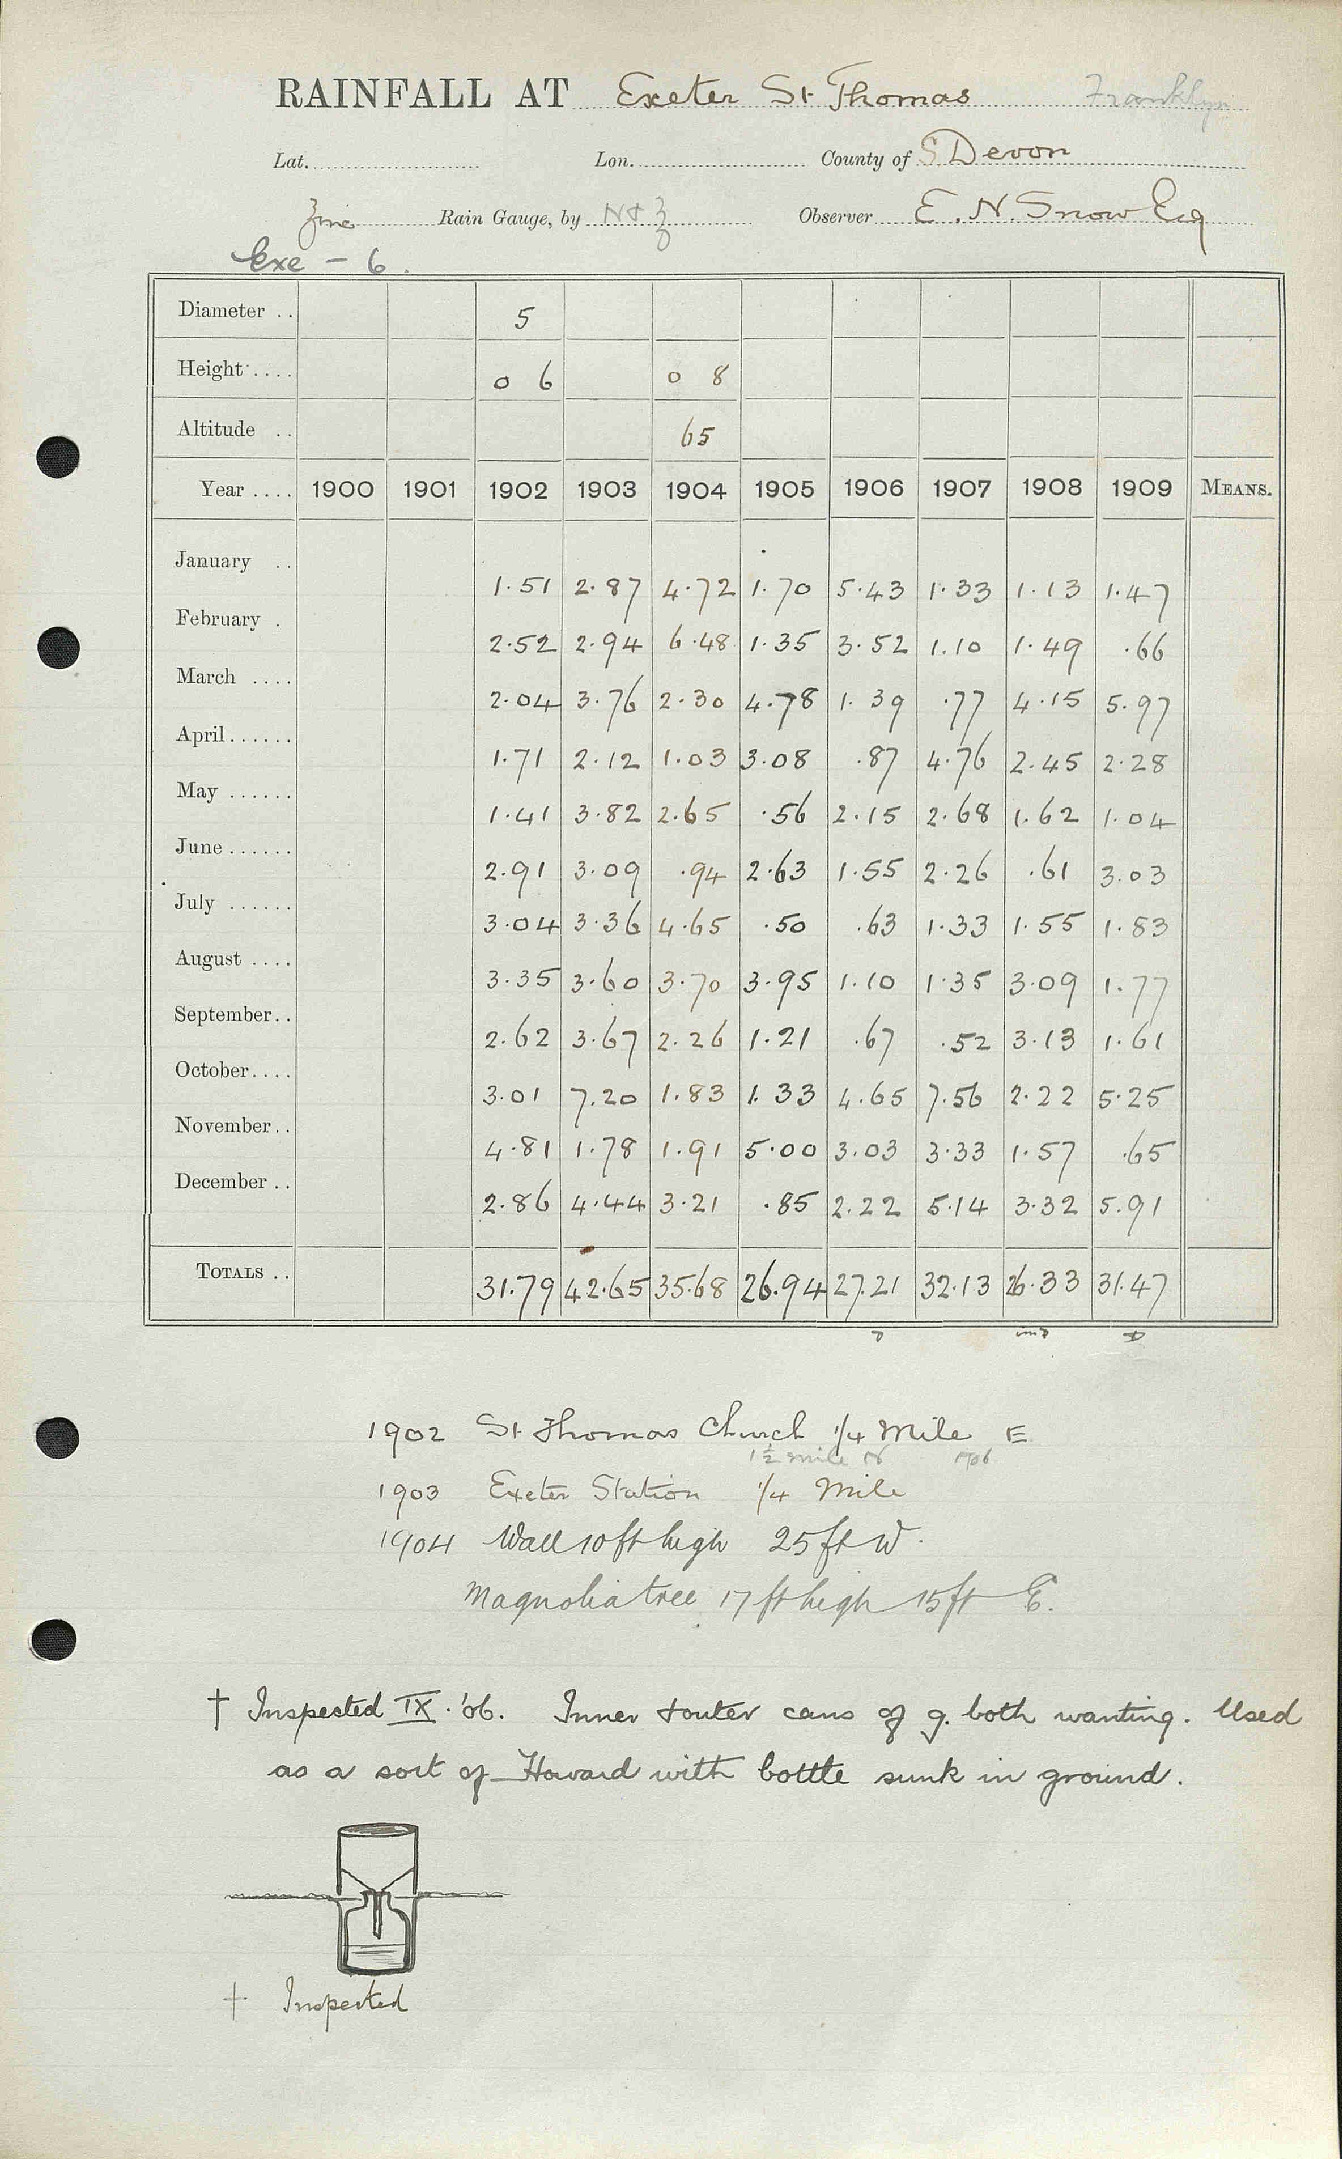 RAINFALL AT Exeter St Thomas Franklyn
Lat. Lon. County of S Devon
Zinc Rain Gauge, by N & Z Observer E. N. Snow Esq
Exe - 6.
Diameter .. 5
Height .... 0 6 0 8
Altitude .. 65
Year .... 1900 1901 1902 1903 1904 1905 1906 1907 1908 1909 MEANS.
January .. 1.51 2.87 4.72 1.70 5.43 1.33 1.13 1.47
February . 2.52 2.94 6.48 1.35 3.52 1.10 1.49 .66
March .... 2.04 3.76 2.30 4.78 1.39 .77 4.15 5.97
April...... 1.71 2.12 1.03 3.08 .87 4.76 2.45 2.28
May ...... 1.41 3.82 2.65 .56 2.15 2.68 1.62 1.04
June...... 2.91 3.09 .94 2.63 1.55 2.26 .61 3.03
July ...... 3.04 3.36 4.65 .50 .63 1.33 1.55 1.83
August .... 3.35 3.60 3.70 3.95 1.10 1.35 3.09 1.77
September.. 2.62 3.67 2.26 1.21 .67 .52 3.13 1.61
October.... 3.01 7.20 1.83 1.33 4.65 7.56 2.22 5.25
November.. 4.81 1.78 1.91 5.00 3.03 3.33 1.57 .65
December .. 2.86 4.44 3.21 .85 2.22 5.14 3.32 5.91
TOTALS .. 31.79 42.65 35.68 26.94 27.21 32.13 26.33 31.47
1902 St Thomas Church 1/4 Mile E
1 1/2 mile N 1906
1903 Exeter Station 1/4 Mile
1904 Wall 10 ft high 25 ft W.
Magnolia tree 17 ft high 15 ft E.
† Inspected IX. '06. Inner & outer cans of g. both wanting. Used
as a sort of Howard with bottle sunk in ground.
† Inspected